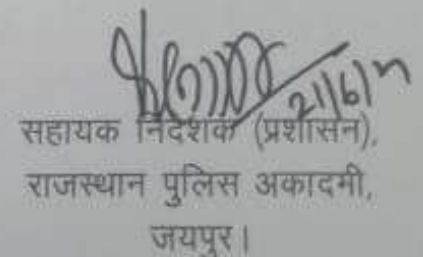 सहायक निदेशक (प्रशासन),
राजस्थान पुलिस अकादमी,
जयपुर।